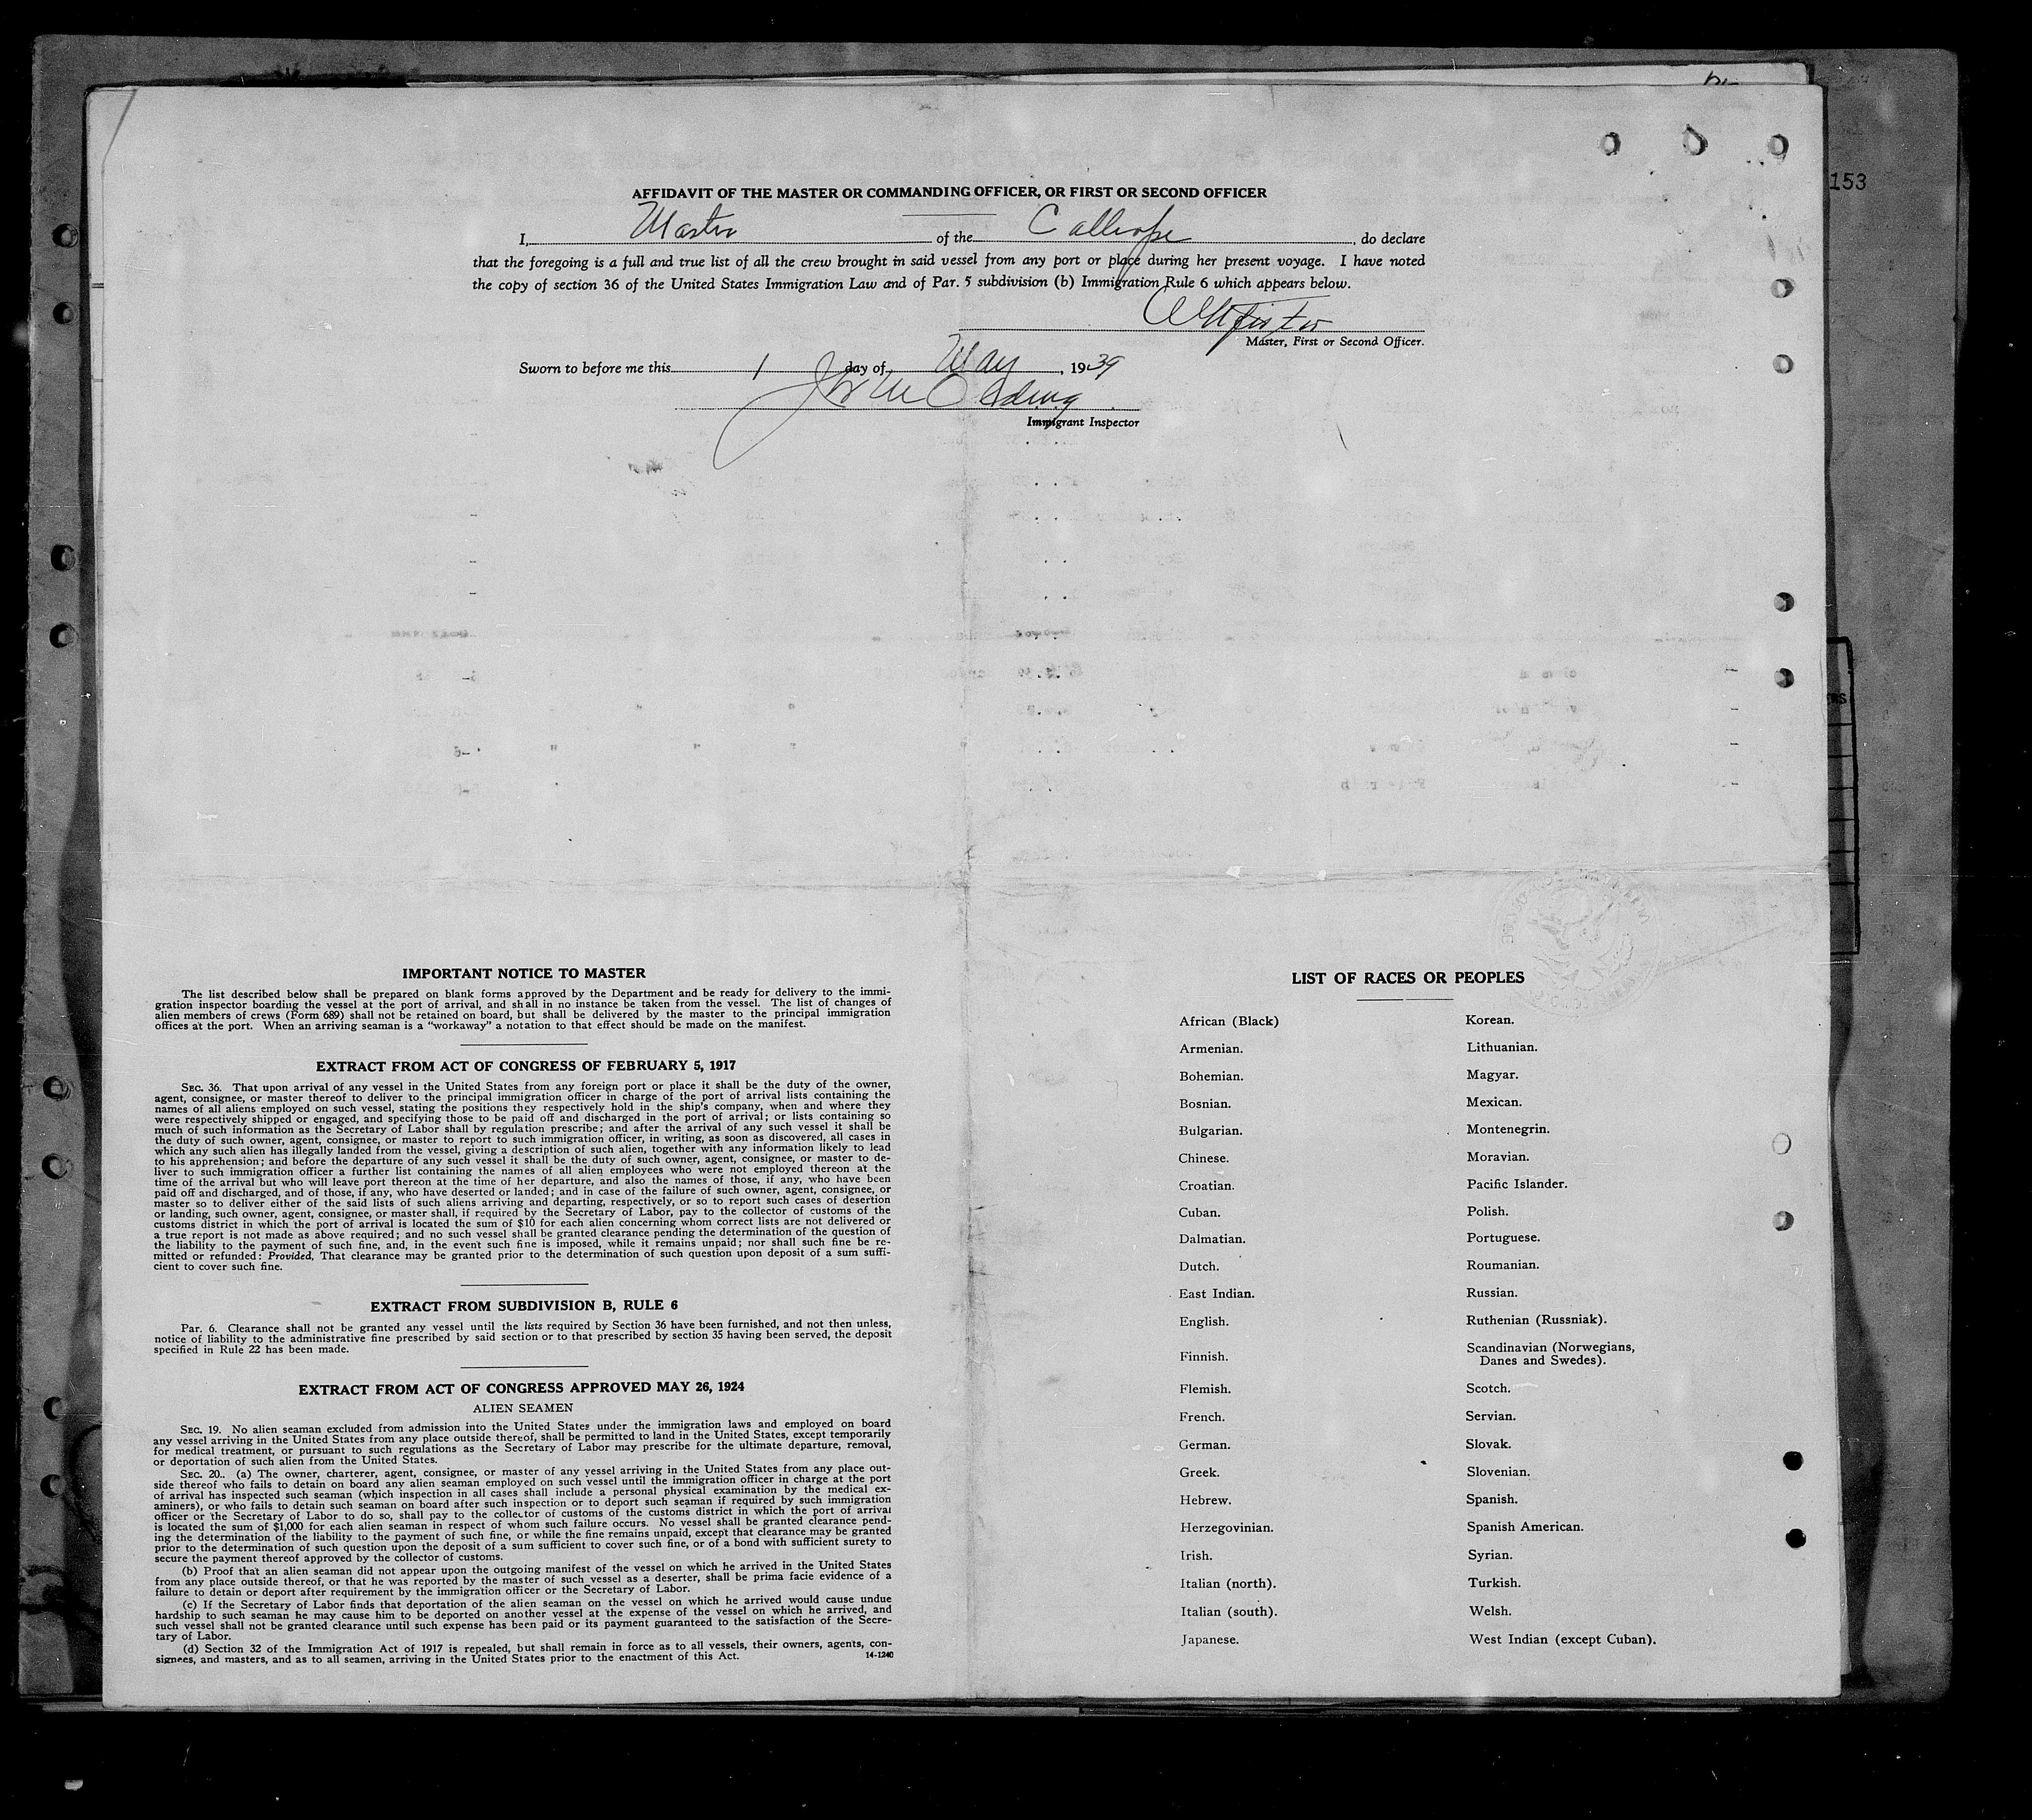 153
AFFIDAVIT OF THE MASTER OR COMMANDING OFFICER, OR FIRST OR SECOND OFFICER
I, Master of the Calliope, do declare
that the foregoing is a full and true list of all the crew brought in said vessel from any port or place during her present voyage. I have noted
the copy of section 36 of the United States Immigration Law and of Par. 5 subdivision (b) Immigration Rule 6 which appears below.
Master, First or Second Officer.
Sworn to before me this 1 day of May, 1939
Immigrant Inspector
IMPORTANT NOTICE TO MASTER
The list described below shall be prepared on blank forms approved by the Department and be ready for delivery to the immi-
gration inspector boarding the vessel at the port of arrival, and shall in no instance be taken from the vessel. The list of changes of
alien members of crews (Form 689) shall not be retained on board, but shall be delivered by the master to the principal immigration
offices at the port. When an arriving seaman is a "workaway" a notation to that effect should be made on the manifest.
EXTRACT FROM ACT OF CONGRESS OF FEBRUARY 5, 1917
SEC. 36. That upon arrival of any vessel in the United States from any foreign port or place it shall be the duty of the owner,
agent, consignee, or master thereof to deliver to the principal immigration officer in charge of the port of arrival lists containing the
names of all aliens employed on such vessel, stating the positions they respectively hold in the ship's company, when and where they
were respectively shipped or engaged, and specifying those to be paid off and discharged in the port of arrival; or lists containing so
much of such information as the Secretary of Labor shall by regulation prescribe; and after the arrival of any such vessel it shall be
the duty of such owner, agent, consignee, or master to report to such immigration officer, in writing, as soon as discovered, all cases in
which any such alien has illegally landed from the vessel, giving a description of such alien, together with any information likely to lead
to his apprehension; and before the departure of any such vessel it shall be the duty of such owner, agent, consignee, or master to de-
liver to such immigration officer a further list containing the names of all alien employees who were not employed thereon at the
time of the arrival but who will leave port thereon at the time of her departure, and also the names of those, if any, who have been
paid off and discharged, and of those, if any, who have deserted or landed; and in case of the failure of such owner, agent, consignee, or
master so to deliver either of the said lists of such aliens arriving and departing, respectively, or so to report such cases of desertion
or landing, such owner, agent, consignee, or master shall, if required by the Secretary of Labor, pay to the collector of customs of the
customs district in which the port of arrival is located the sum of $10 for each alien concerning whom correct lists are not delivered or
a true report is not made as above required; and no such vessel shall be granted clearance pending the determination of the question of
the liability to the payment of such fine, and, in the event such fine is imposed, while it remains unpaid; nor shall such fine be re-
mitted or refunded: Provided, That clearance may be granted prior to the determination of such question upon deposit of a sum suffi-
cient to cover such fine.
EXTRACT FROM SUBDIVISION B, RULE 6
Par. 6. Clearance shall not be granted any vessel until the lists required by Section 36 have been furnished, and not then unless,
notice of liability to the administrative fine prescribed by said section or to that prescribed by section 35 having been served, the deposit
specified in Rule 22 has been made.
EXTRACT FROM ACT OF CONGRESS APPROVED MAY 26, 1924
ALIEN SEAMEN
SEC. 19. No alien seaman excluded from admission into the United States under the immigration laws and employed on board
any vessel arriving in the United States from any place outside thereof, shall be permitted to land in the United States, except temporarily
for medical treatment, or pursuant to such regulations as the Secretary of Labor may prescribe for the ultimate departure, removal,
or deportation of such alien from the United States.
SEC. 20.. (a) The owner, charterer, agent, consignee, or master of any vessel arriving in the United States from any place out-
side thereof who fails to detain on board any alien seaman employed on such vessel until the immigration officer in charge at the port
of arrival has inspected such seaman (which inspection in all cases shall include a personal physical examination by the medical ex-
aminers), or who fails to detain such seaman on board after such inspection or to deport such seaman if required by such immigration
officer or the Secretary of Labor to do so, shall pay to the collector of customs of the customs district in which the port of arrival
is located the sum of $1,000 for each alien seaman in respect of whom such failure occurs. No vessel shall be granted clearance pend-
ing the determination of the liability to the payment of such fine, or while the fine remains unpaid, except that clearance may be granted
prior to the determination of such question upon the deposit of a sum sufficient to cover such fine, or of a bond with sufficient surety to
secure the payment thereof approved by the collector of customs.
(b) Proof that an alien seaman did not appear upon the outgoing manifest of the vessel on which he arrived in the United States
from any place outside thereof, or that he was reported by the master of such vessel as a deserter, shall be prima facie evidence of a
failure to detain or deport after requirement by the immigration officer or the Secretary of Labor.
(c) If the Secretary of Labor finds that deportation of the alien seaman on the vessel on which he arrived would cause undue
hardship to such seaman he may cause him to be deported on another vessel at the expense of the vessel on which he arrived, and
such vessel shall not be granted clearance until such expense has been paid or its payment guaranteed to the satisfaction of the Secre-
tary of Labor.
(d) Section 32 of the Immigration Act of 1917 is repealed, but shall remain in force as to all vessels, their owners, agents, con-
signees, and masters, and as to all seamen, arriving in the United States prior to the enactment of this Act.
14-1240
LIST OF RACES OR PEOPLES
African (Black)
Armenian.
Bohemian.
Bosnian.
Bulgarian.
Chinese.
Croatian.
Cuban.
Dalmatian.
Dutch.
East Indian.
English.
Finnish.
Flemish.
French.
German.
Greek.
Hebrew.
Herzegovinian.
Irish.
Italian (north).
Italian (south).
Japanese.
Korean.
Lithuanian.
Magyar.
Mexican.
Montenegrin.
Moravian.
Pacific Islander.
Polish.
Portuguese.
Roumanian.
Russian.
Ruthenian (Russniak).
Scandinavian (Norwegians,
Danes and Swedes).
Scotch.
Servian.
Slovak.
Slovenian.
Spanish.
Spanish American.
Syrian.
Turkish.
Welsh.
West Indian (except Cuban).